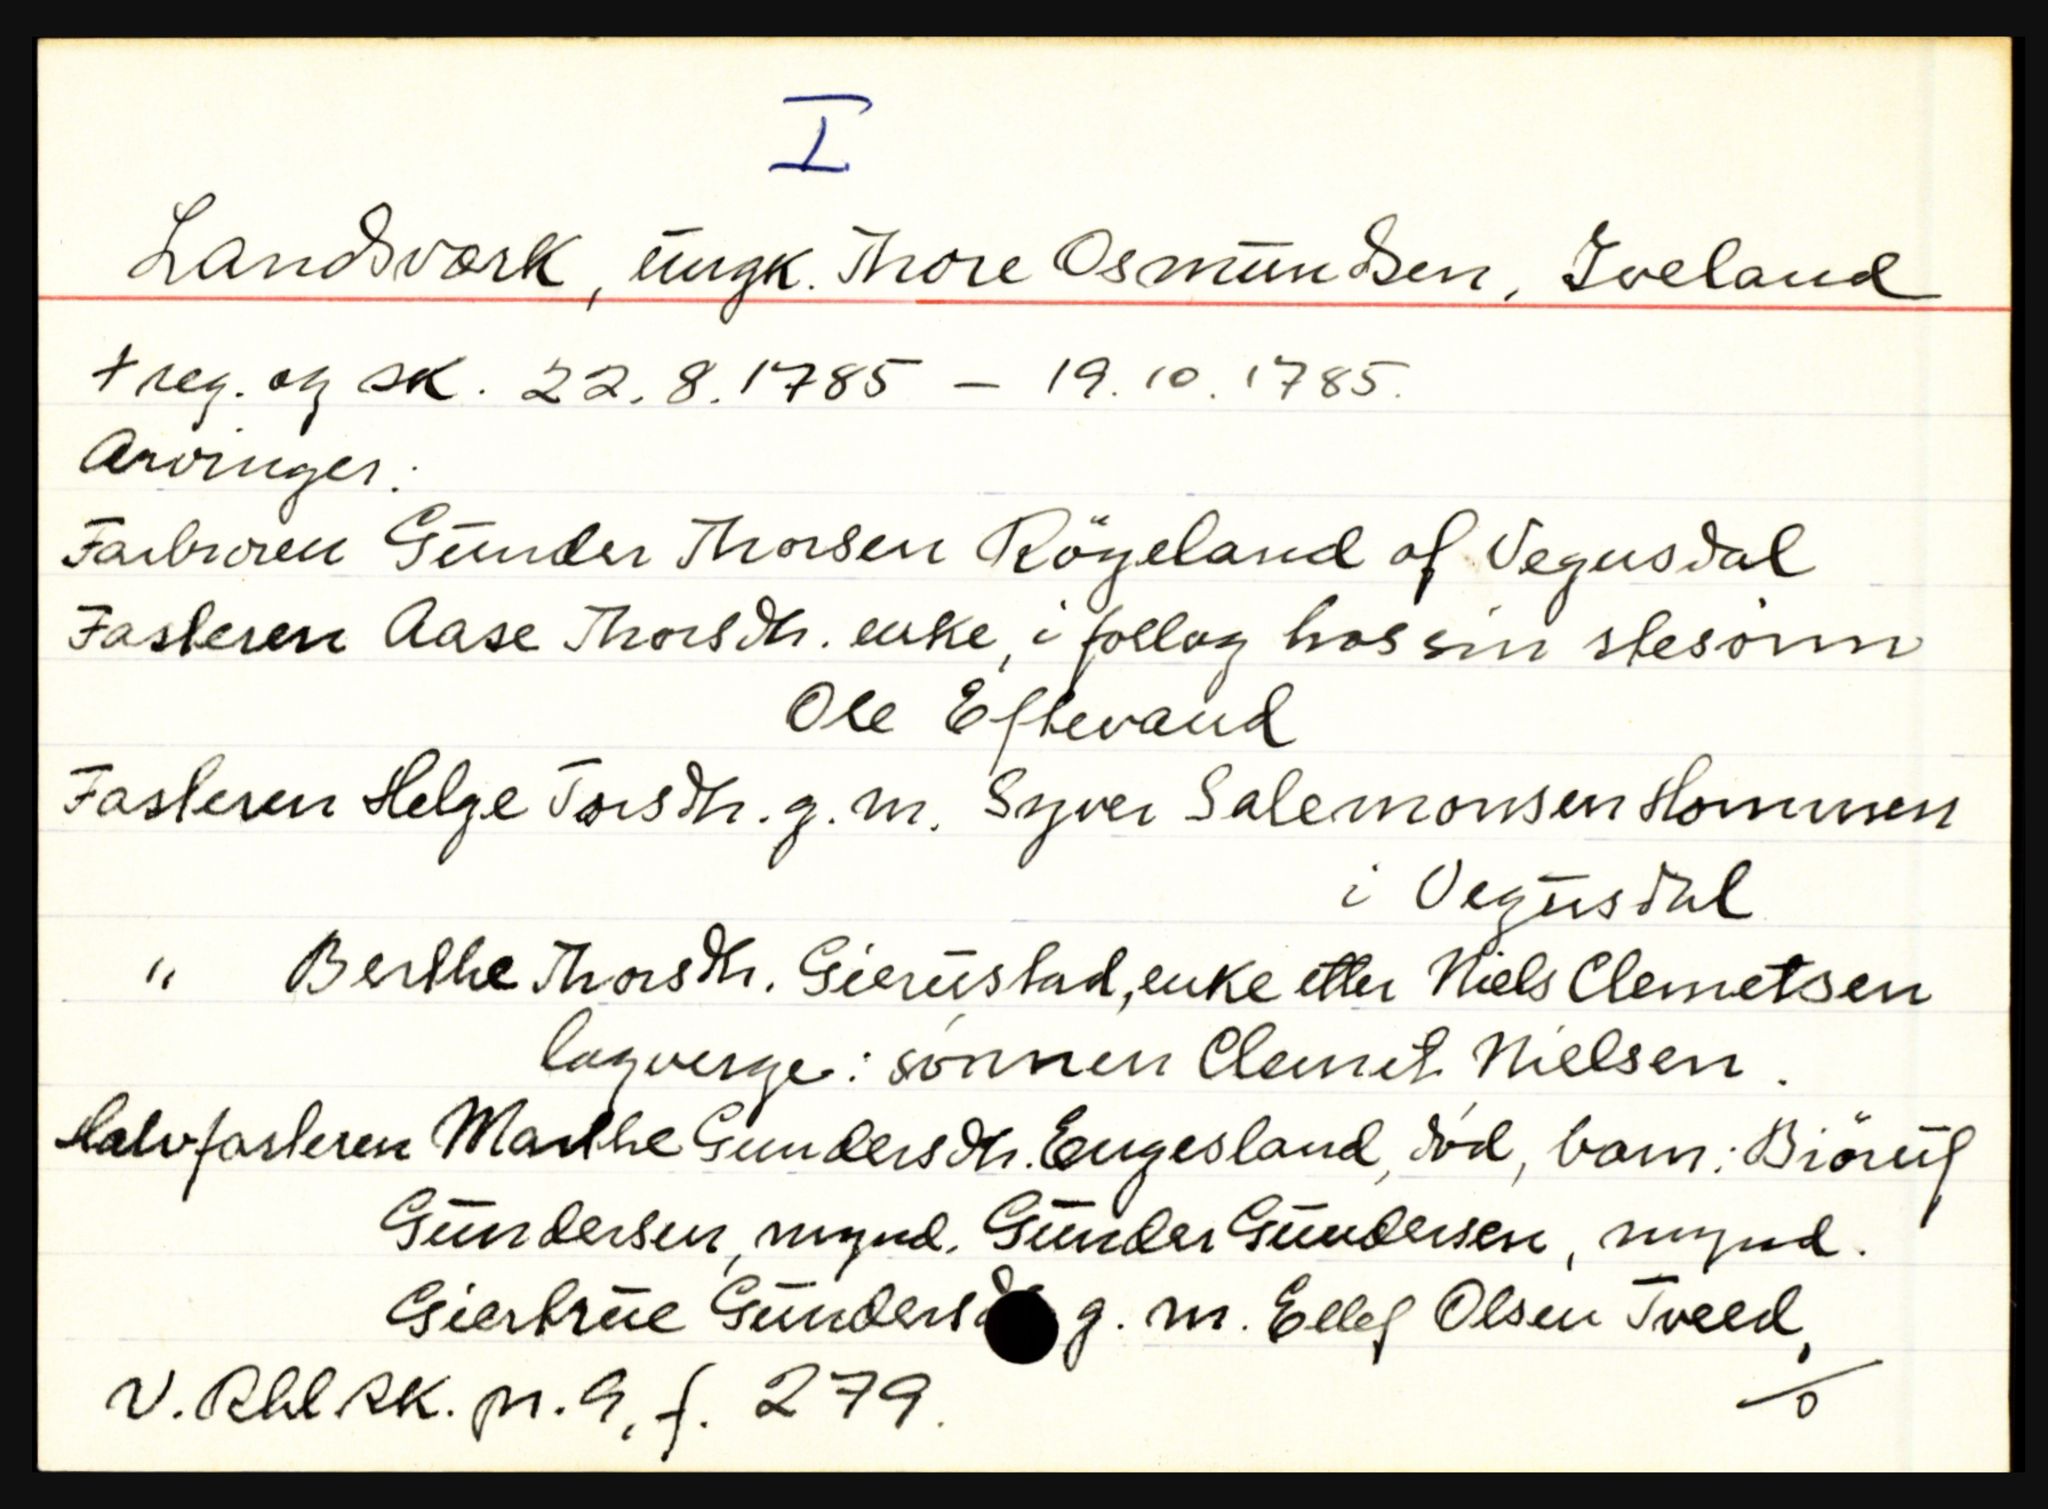 I
Landsværk, ungk. Thore Osmundsen, Iveland
+ reg. og sk. 22.8.1785 – 19.10.1785.
Arvinger:
Farbroren Gunder Thorsen Rögeland af Vegusdal
Fasteren Aase Thorsdtr. enke, i follog hos sin stesönn
Ole Eftevand
Fasteren Helge Torsdtr. g. m. Syver Salemonsen Hommen
i Vegusdal
" Berthe Thorsdtr. Gierustad, enke etter Niels Clemetsen
lagverge: sönnen Clemet Nielsen.
Halvfasteren Marthe Gundersdtr. Engesland, död, barn: Biörulf
Gundersen, mynd. Gunder Gundersen, mynd.
Giertrue Gundersd g. m. Ellef Olsen Tveed,
V. Rbl. sk. pr. 9, f. 279.